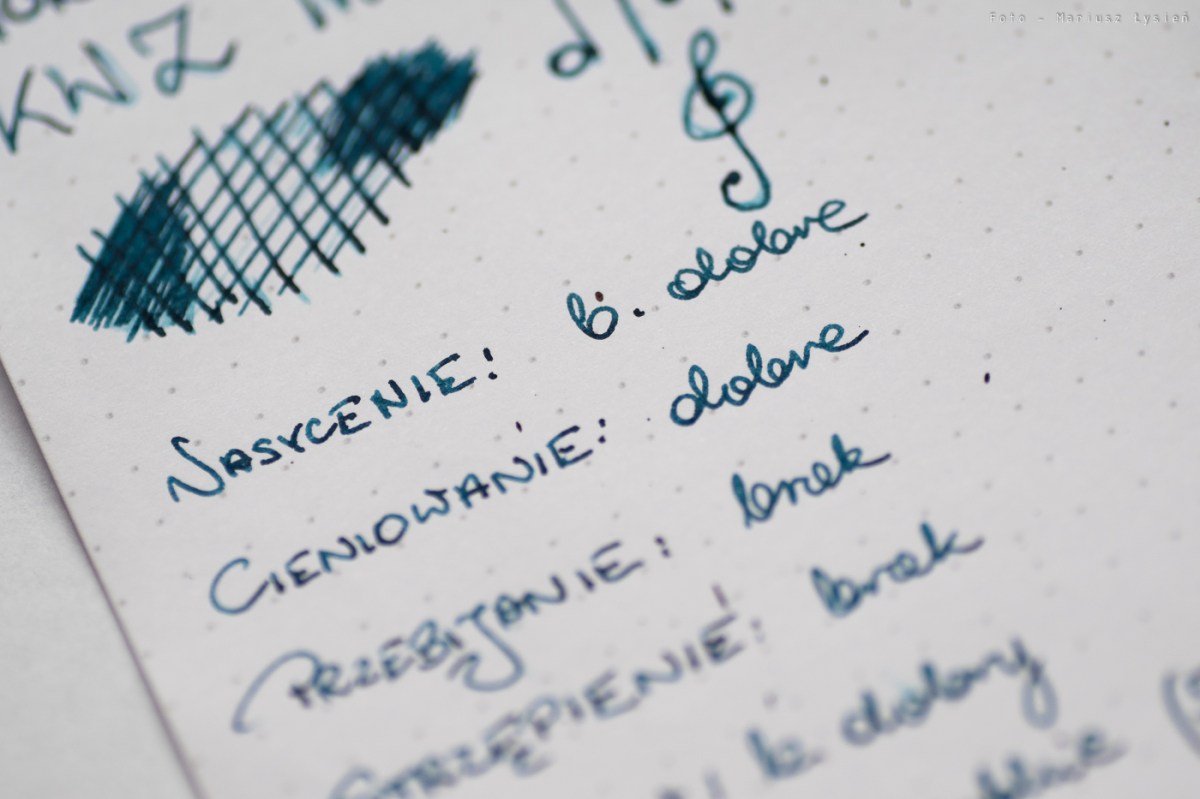 Foto - Mariusz Łysień
KWZ
NASYCENIE: b. dobre
CIENIOWANIE: dobre
PRZEBIJANIE: brak
STRZĘPIENIE: brak
b. dobry